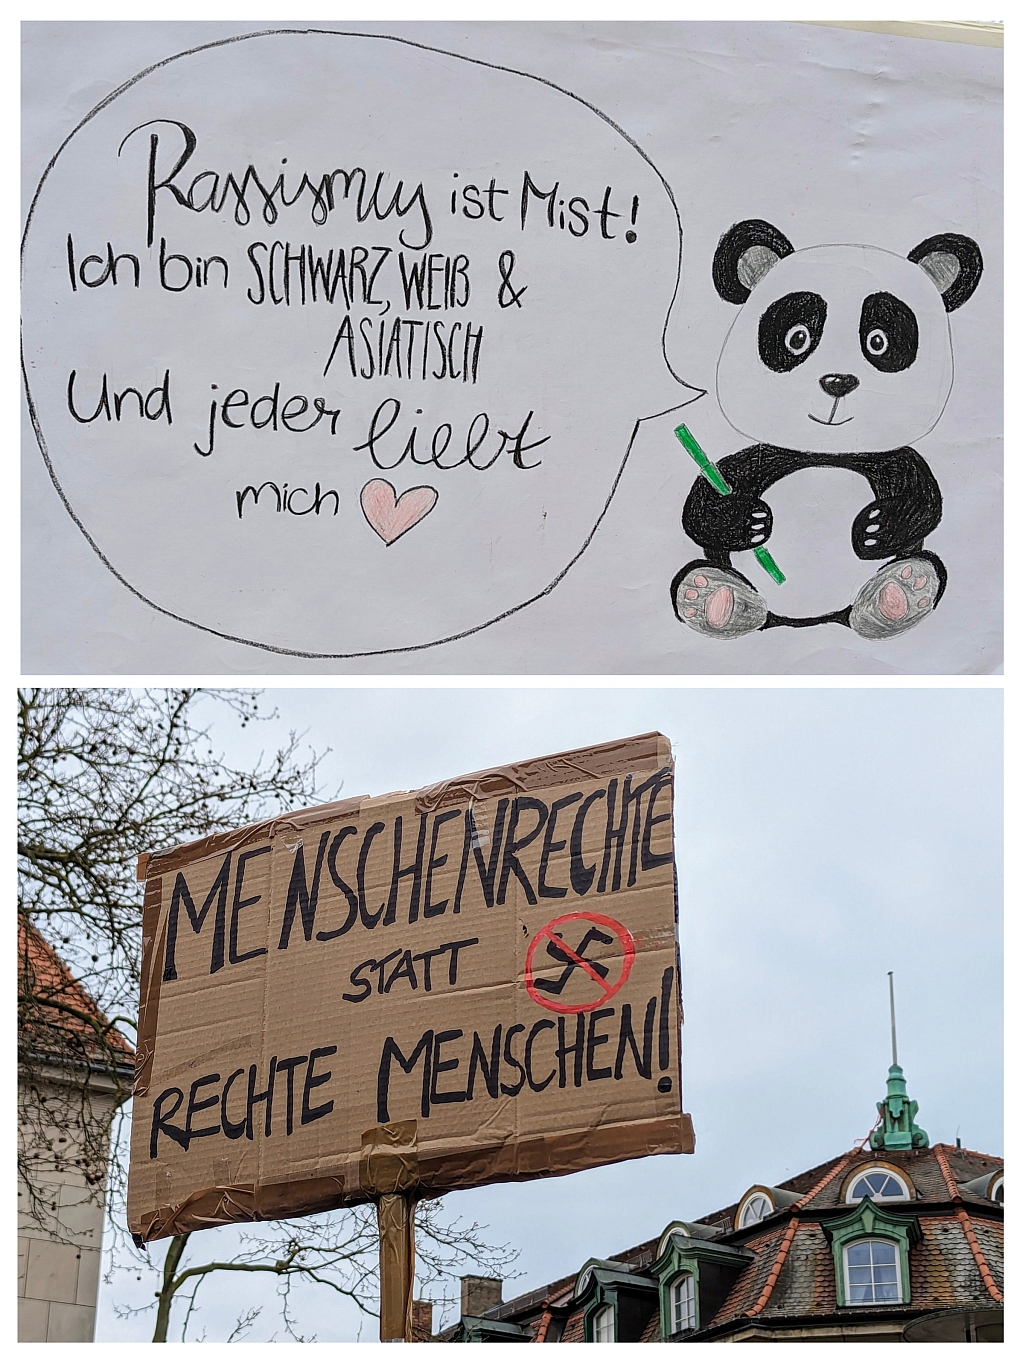 Rassismus ist Mist!
Ich bin SCHWARZ, WEIß &
ASIATISCH
Und jeder liebt
mich
MENSCHENRECHTE
STATT
RECHTE MENSCHEN!